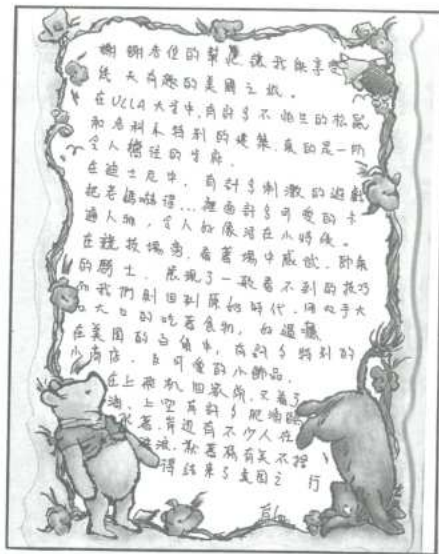 謝謝各位的幫忙讓我能享受
幾天有趣的美國之旅。
在UCLA大學中,有許多不怕生的松鼠
和各科系特別的建築,真的是一所
令人嚮往的學府。
在迪士尼中,有許多刺激的遊戲
把老媽嚇得...裡面許多可愛的卡
通人物,令人好像活在小時侯。
在競技場旁,看著場中威武、帥氣
的騎士,展現了一般看不到的技巧
而我們則回到原始時代,用手大
口大口的吃著食物,好過癮
在美國的百貨中,有許多特別的
小商店,且可愛的小飾品。
在上飛機回家前,又看了
海,上空有許多肥海鷗
著,岸邊有不少人在
浪,就著稱有美不捨
得結束了美國之 行